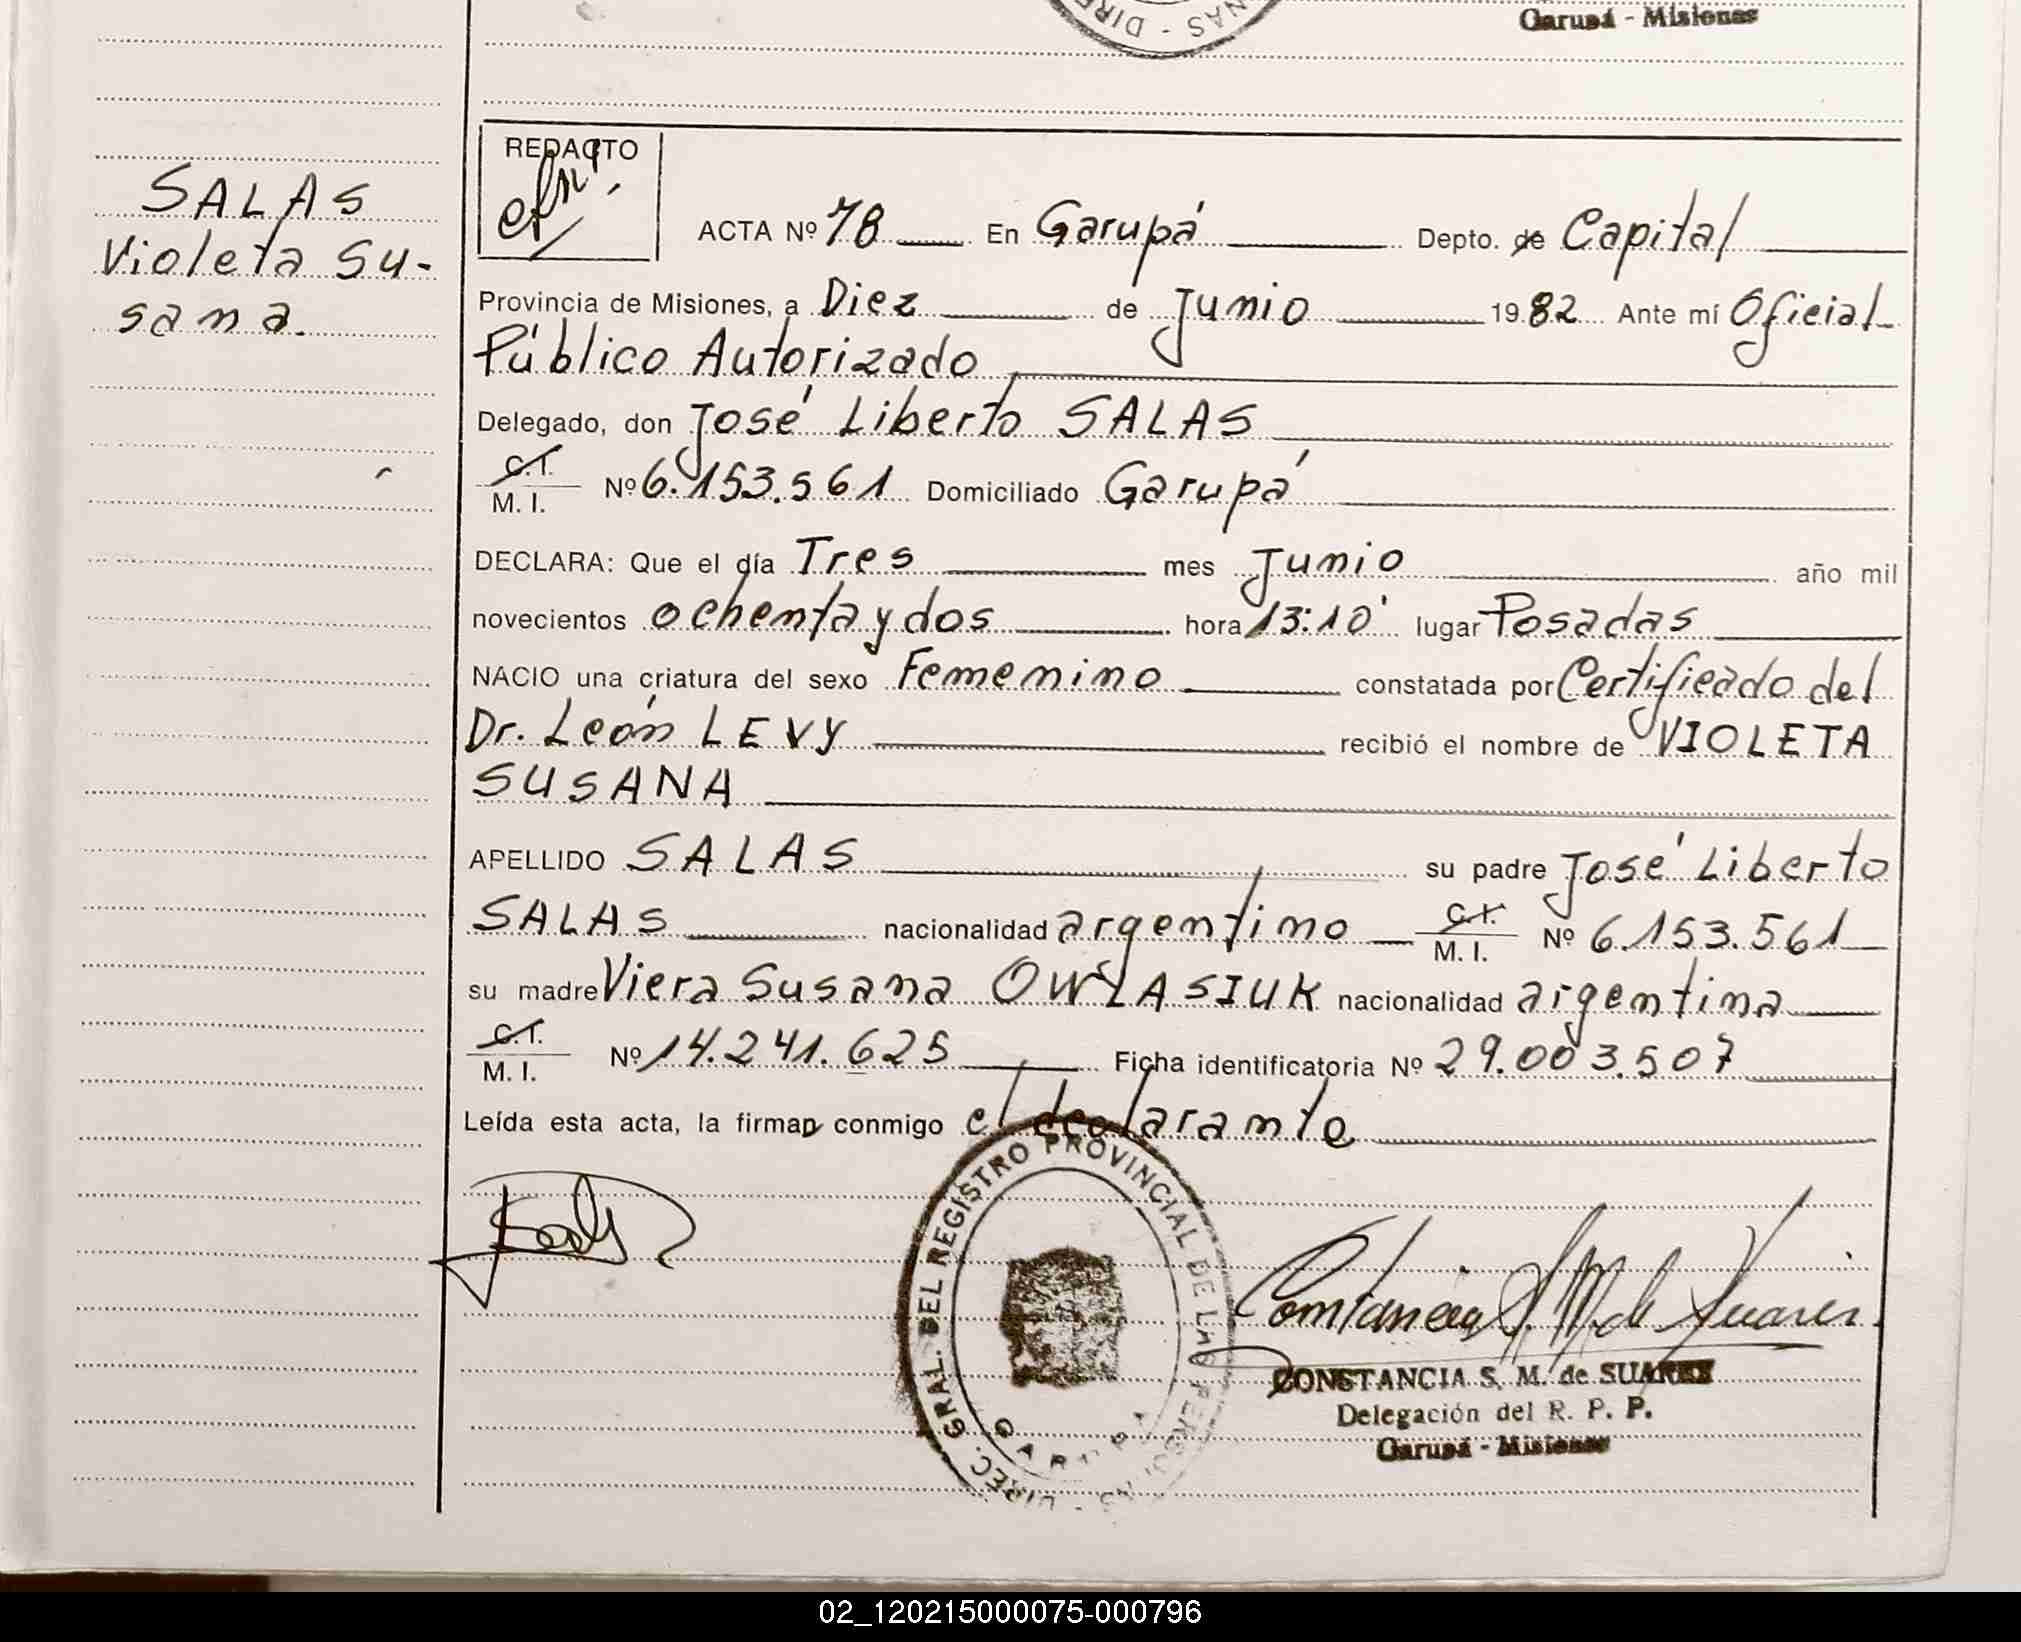 Garupá - Misiones
REDACTO
SALAS
Violeta Su-
sana.
ACTA Nº 78 En Garupá Depto. de Capital
Provincia de Misiones, a Diez de Junio 1982 Ante mí Oficial
Público Autorizado
Delegado, don José Liberto SALAS
C.I.
M. I. Nº 6.153.561 Domiciliado Garupá
DECLARA: Que el día Tres mes Junio año mil
novecientos ochenta y dos hora 13:10' lugar Posadas
NACIO una criatura del sexo Femenino constatada por Certificado del
Dr. León LEVY recibió el nombre de VIOLETA
SUSANA
APELLIDO SALAS su padre José Liberto
SALAS nacionalidad argentino C.I. M. I. Nº 6.153.561
su madre Viera Susana OWLASIUK nacionalidad argentina
C.I.
M. I. Nº 14.241.625 Ficha identificatoria Nº 29.003.507
Leída esta acta, la firman conmigo el declarante
DIREC. GRAL. DEL REGISTRO PROVINCIAL DE LAS PERSONAS -
GARUPA
Constancia S. M. de Suarez
CONSTANCIA S. M. de SUAREZ
Delegación del R. P. P.
Garupá - Misiones
02_120215000075-000796